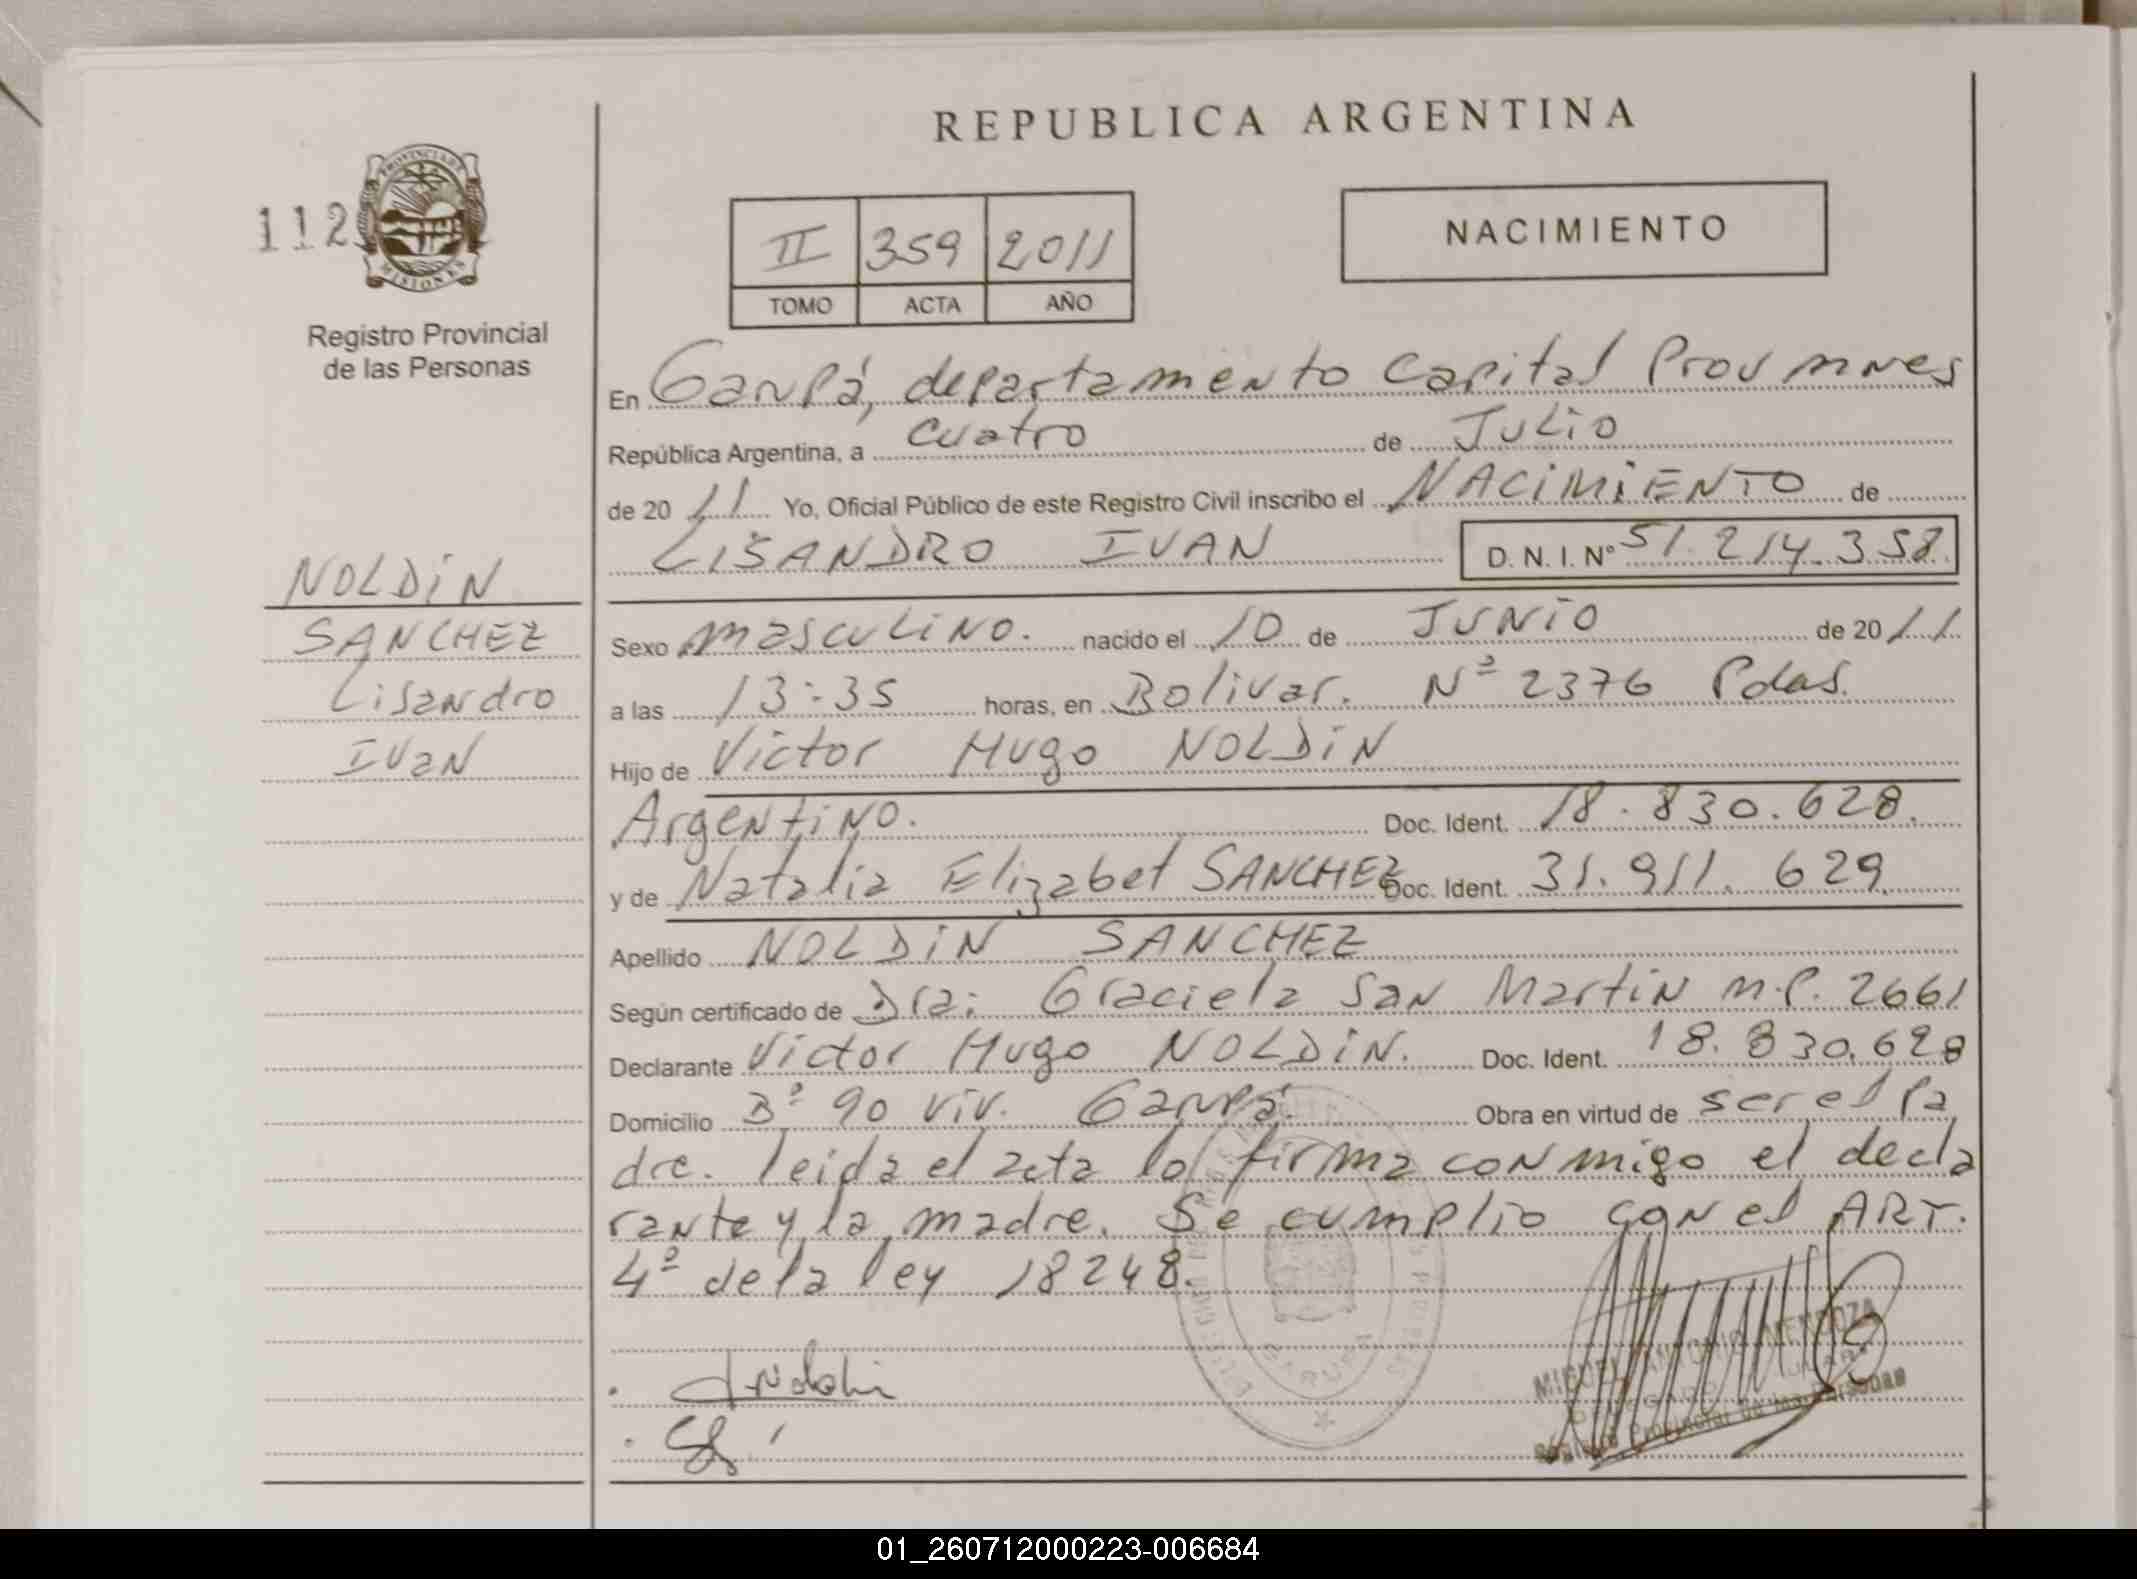 REPUBLICA ARGENTINA
112
PROVINCIA DE
MISIONES
Registro Provincial
de las Personas
II 359 2011
TOMO ACTA AÑO
NACIMIENTO
En Garupá, departamento Capital Prov mnes
República Argentina, a cuatro de Julio
de 20 11 Yo, Oficial Público de este Registro Civil inscribo el NACIMIENTO de
LISANDRO IVAN D. N. I. N° 51.214.358.
NOLDIN
SANCHEZ
Lisandro
Ivan
Sexo masculino. nacido el 10 de JUNIO de 20 11
a las 13:35 horas, en Bolivar. Nº 2376 Pdas.
Hijo de Victor Hugo NOLDIN
Argentino. Doc. Ident. 18.830.628.
y de Natalia Elizabet SANCHEZ Doc. Ident. 31.911.629
Apellido NOLDIN SANCHEZ
Según certificado de Dra: Graciela San Martin m.p. 2661
Declarante Victor Hugo NOLDIN. Doc. Ident. 18.830.628
Domicilio Bº 90 viv. Garupá. Obra en virtud de ser el pa
dre. leida el acta lo firma conmigo el decla
rante y la madre. Se cumplio con el ART.
4º de la ley 18248.
MIGUEL ANTONIO MENDOZA
Registro Provincial de las Personas
01_260712000223-006684